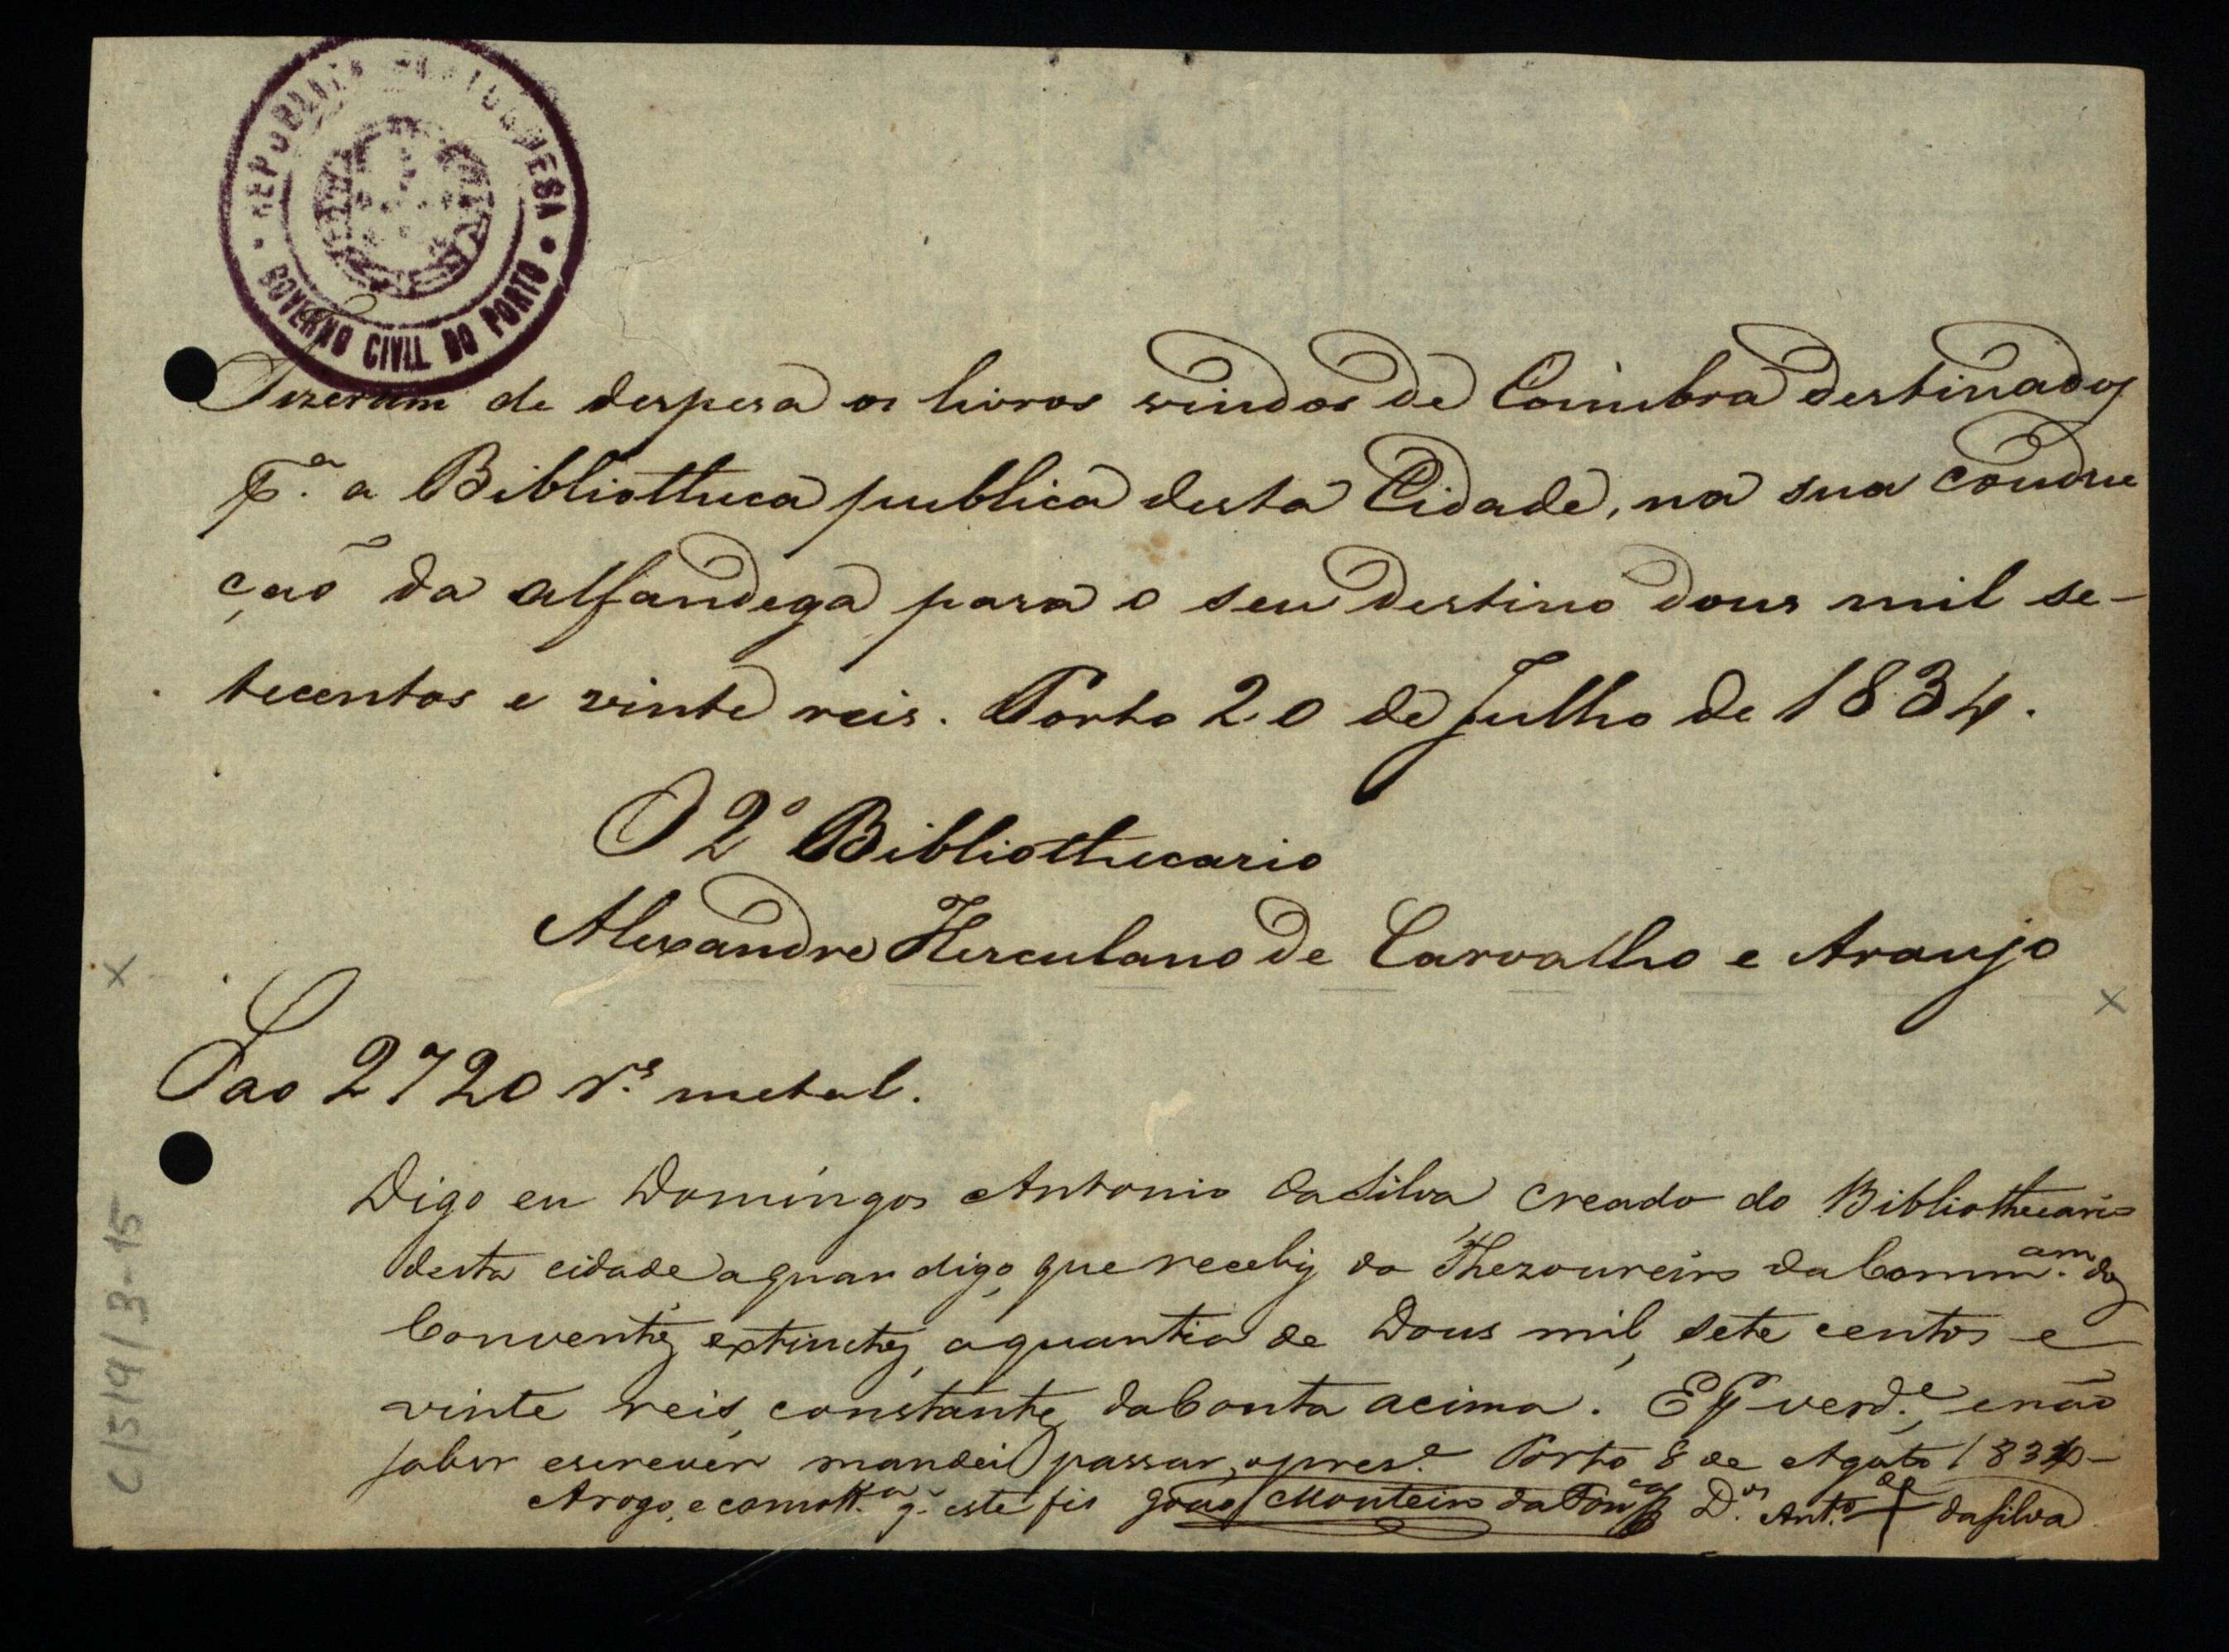 REPUBLICA PORTUGUESA
GOVERNO CIVIL DO PORTO
Fizeram de despesa os livros vindos de Coimbra destinados
p.ª a Bibliotheca publica desta Cidade, na sua conduc
çaõ da alfandega para o seu destino dous mil se-
tecentos e vinte reis. Porto 20 de Julho de 1834.
O 2º Bibliothecario
Alexandre Herculano de Carvalho e Araujo
Sao 2720 r.s metal.
Digo eu Domingos Antonio da Silva creado do Bibliothecario
desta cidade digo, que recebi do Thezoureiro da Comm.am dos
Conventos extinctos, a quantia de Dous mil, sete centos e
vinte reis, constante da Conta acima. E p verd.e, e não
saber escrever mandei passar, o pres.e Porto 8 de Agosto 1834-
A rogo, e como tt.a q. este fis João Monteiro da Fon.ca D.os Ant.o + da Silva
C/5/9/3-15